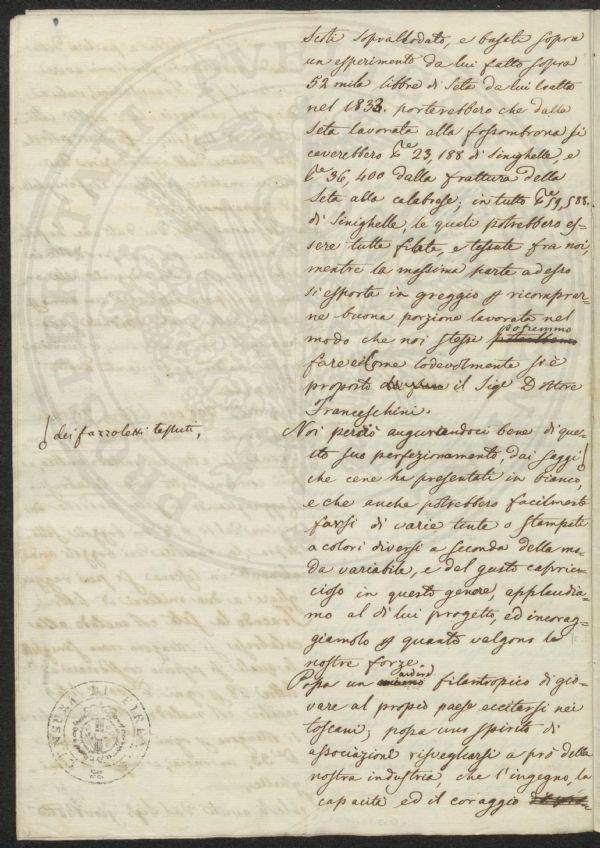 sisti sopralodato, e basati sopra
un esperimento da lui fatto sopra
52 mila libbre di Seta da lui tratta
nel 1833. porterebbero che dalla
Seta lavorata alla fossombrona si
caverebbero 23,188 di Sinighelle, e
36,400 dalla frattura della
Seta alla calabrese; in tutto 59,588.
di Sinighelle, le quali potrebbero es=
sere tutte filate, e tessute fra noi,
mentre la massima parte adesso
si esporta in greggio p ricomprar=
ne buona porzione lavorata nel
modo che noi stessi potremmo
fare e come lodevolmente si è
proposto il Sigr Dottore
Franceschini.
dei fazzoletti tessuti,
Noi perciò augurandoci bene di que=
sto suo perfezionamento, dai saggi
che cene ha presentati in bianco,
e che anche potrebbero facilmente
farsi di varie tinte o stampati
a colori diversi a seconda della mo=
da variabile, e del gusto capric=
cioso in questo genere, applaudia=
mo al di lui progetto, ed incorag=
giamolo p quanto valgono le
nostre forze.
Possa un ardire filantropico di gio=
vare al propio paese eccitarsi nei
toscani; possa uno spirito di
associazione risvegliarsi a prò della
nostra industria, che l'ingegno, la
capacità ed il coraggio